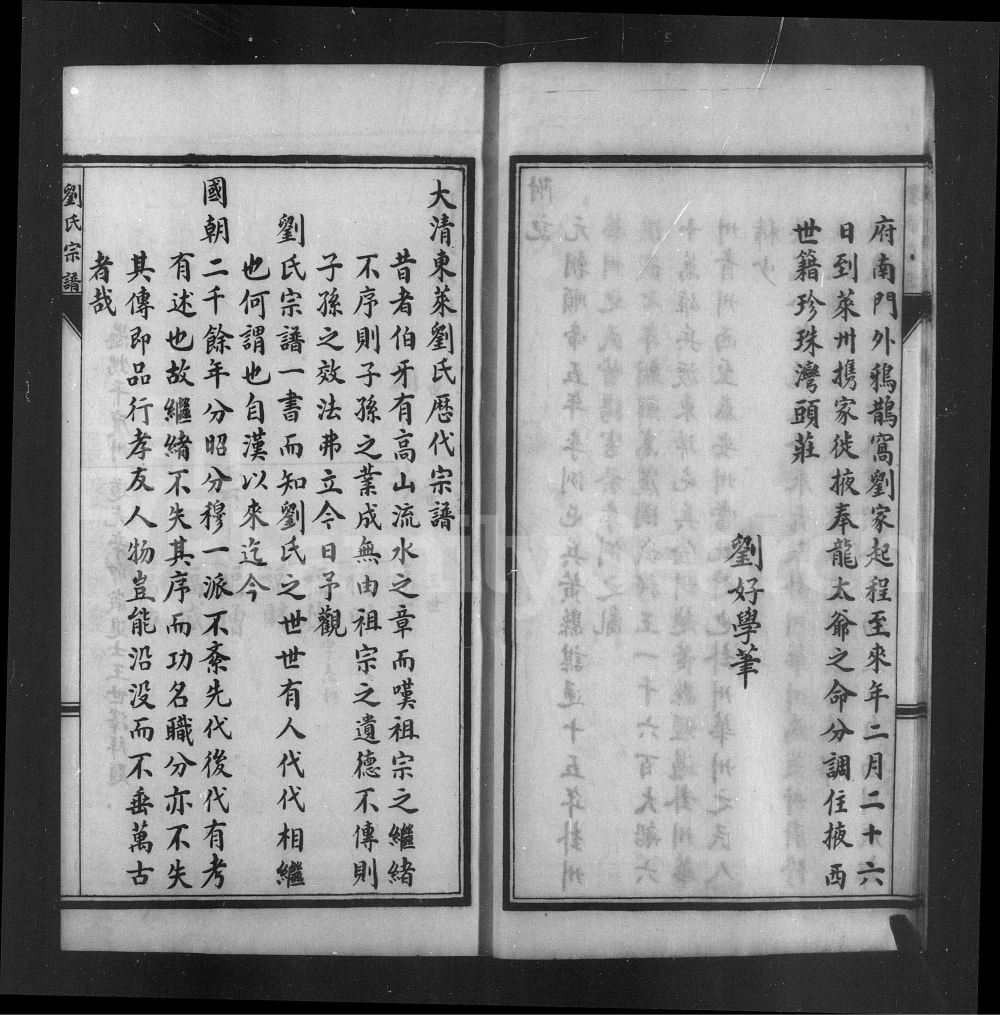 府南門外鴉鵲窩劉家起程至來年二月二十六
日到萊州攜家徙掖奉龍太爺之命分調住掖西
世籍珍珠灣頭莊
劉好學筆
大清東萊劉氏歷代宗譜
昔者伯牙有高山流水之章而嘆祖宗之繼緒
不序則子孫之業成無由祖宗之遺德不傳則
子孫之效法弗立今日予觀
劉氏宗譜一書而知劉氏之世世有人代代相繼
也何謂也自漢以來迄今
國朝二千餘年分昭分穆一派不紊先代後代有考
有述也故繼緒不失其序而功名職分亦不失
其傳即品行孝友人物豈能沿没而不垂萬古
者哉
劉氏宗譜